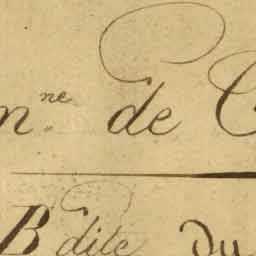 m.ne de C
B dite du